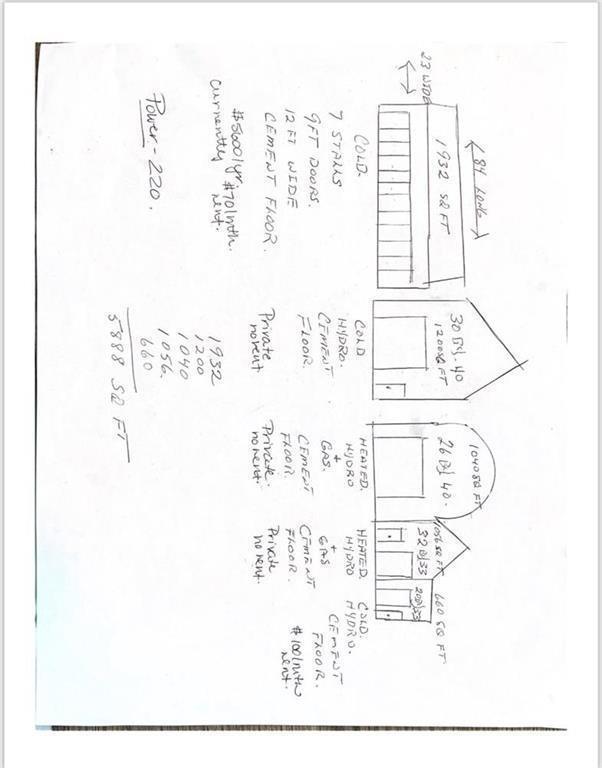 84 LONG
23 WIDE
1932 SQ FT
COLD.
7 STALLS
9FT DOORS.
12 FT WIDE
CEMENT FLOOR.
$5600/yr
currently
$70/mth.
rent.
Power - 220.
30 By. 40
1200SQ FT
COLD
HYDRO.
CEMENT
FLOOR.
Private
no rent.
1040SQ FT
26 By 40.
HEATED.
HYDRO
+
GAS.
CEMENT
FLOOR.
Private.
no rent.
1056 SQ FT
32 By 33
HEATED.
HYDRO
+
GAS
CEMENT
FLOOR.
Private
no rent.
660 SQ FT
20 By 33
COLD.
HYDRO.
CEMENT
FLOOR.
$100/mth
rent.
1932
1200
1040
1056.
660
5888 SQ FT